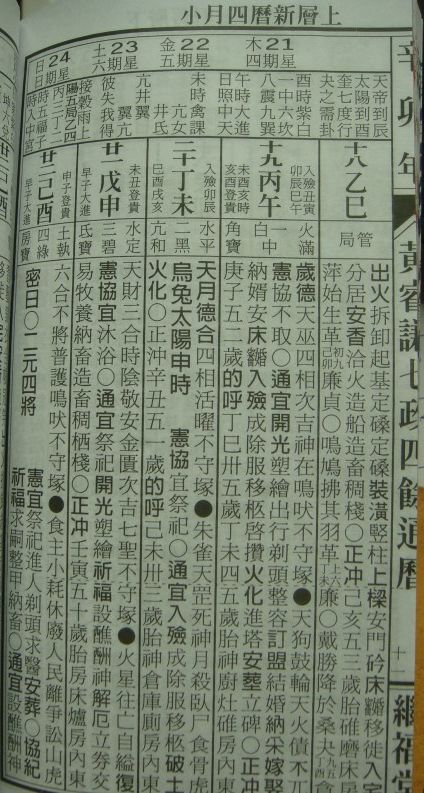 上層新曆四月小
辛卯年
黃睿謙七政四餘通曆
十一
繼福堂
星期四
21
木
星期五
22
金
星期六
23
土
星期日
24
日
天帝到辰
太陽到酉
奎七度行
夬之需卦
酉時紫白
一中六坎
八震九巽
日照中天
午時大進
未時禽課
亢女
井氐
亢井翼
翼亢
彼失我得
接穀雨上
陽五局乙四
丙三丁二
時五福子
時入中宮
十八乙巳
管局
十九丙午
入殮丑寅
卯辰巳午
火滿
一白中
未酉亥時
亥酉登貴
角寶
二十丁未
入殮卯辰
水平
二黑
巳酉戌亥
亢和
廿一戊申
水定
三碧
未丑登貴
早子大進
氐寶
廿二己酉
土執
四綠
申子登貴
早子大進
房寶
出火拆卸起基定磉定磉裝潢竪柱上樑安門砛床繭移徙入宅
分居安香洽火造船造畜稠棧○正冲己亥五三歲胎碓磨床房
萍始生革初九己卯廉貞○鳴鳩拂其羽革上六丁未廉○戴勝降於桑夬
歲德天巫四相次吉神在鳴吠不守塚●天狗鼓輪天火債不
憲協不取○通宜開光塑繪出行剃頭整容訂盟結婚納采嫁娶
納婿安床繭入殮成除服移柩啓攢火化進塔安葬立碑○正冲
庚子五二歲的呼丁巳卅五歲丁未四五歲胎神廚灶碓房內東
天月德合四相活曜不守塚●朱雀天罡死神月殺臥尸食骨虎
烏兔太陽申時 憲協宜祭祀○通宜入殮成除服移柩破土
火化○正沖辛丑五一歲的呼己未卅三歲胎神倉庫廁房內東
天財三合時陰敬安金匱次吉七聖不守塚●火星往亡自縊復
憲協宜沐浴○通宜祭祀開光塑繪祈福設醮酬神解厄立券交
易牧養納畜造畜稠栖棧○正沖壬寅五十歲胎房床爐房內東
六合不將普護鳴吠不守塚●食主小耗休廢人民離爭訟山虎
密日○二元四將
憲宜祭祀進人剃頭求醫安葬○協紀
祈福求嗣整甲納畜○通宜設醮酬神